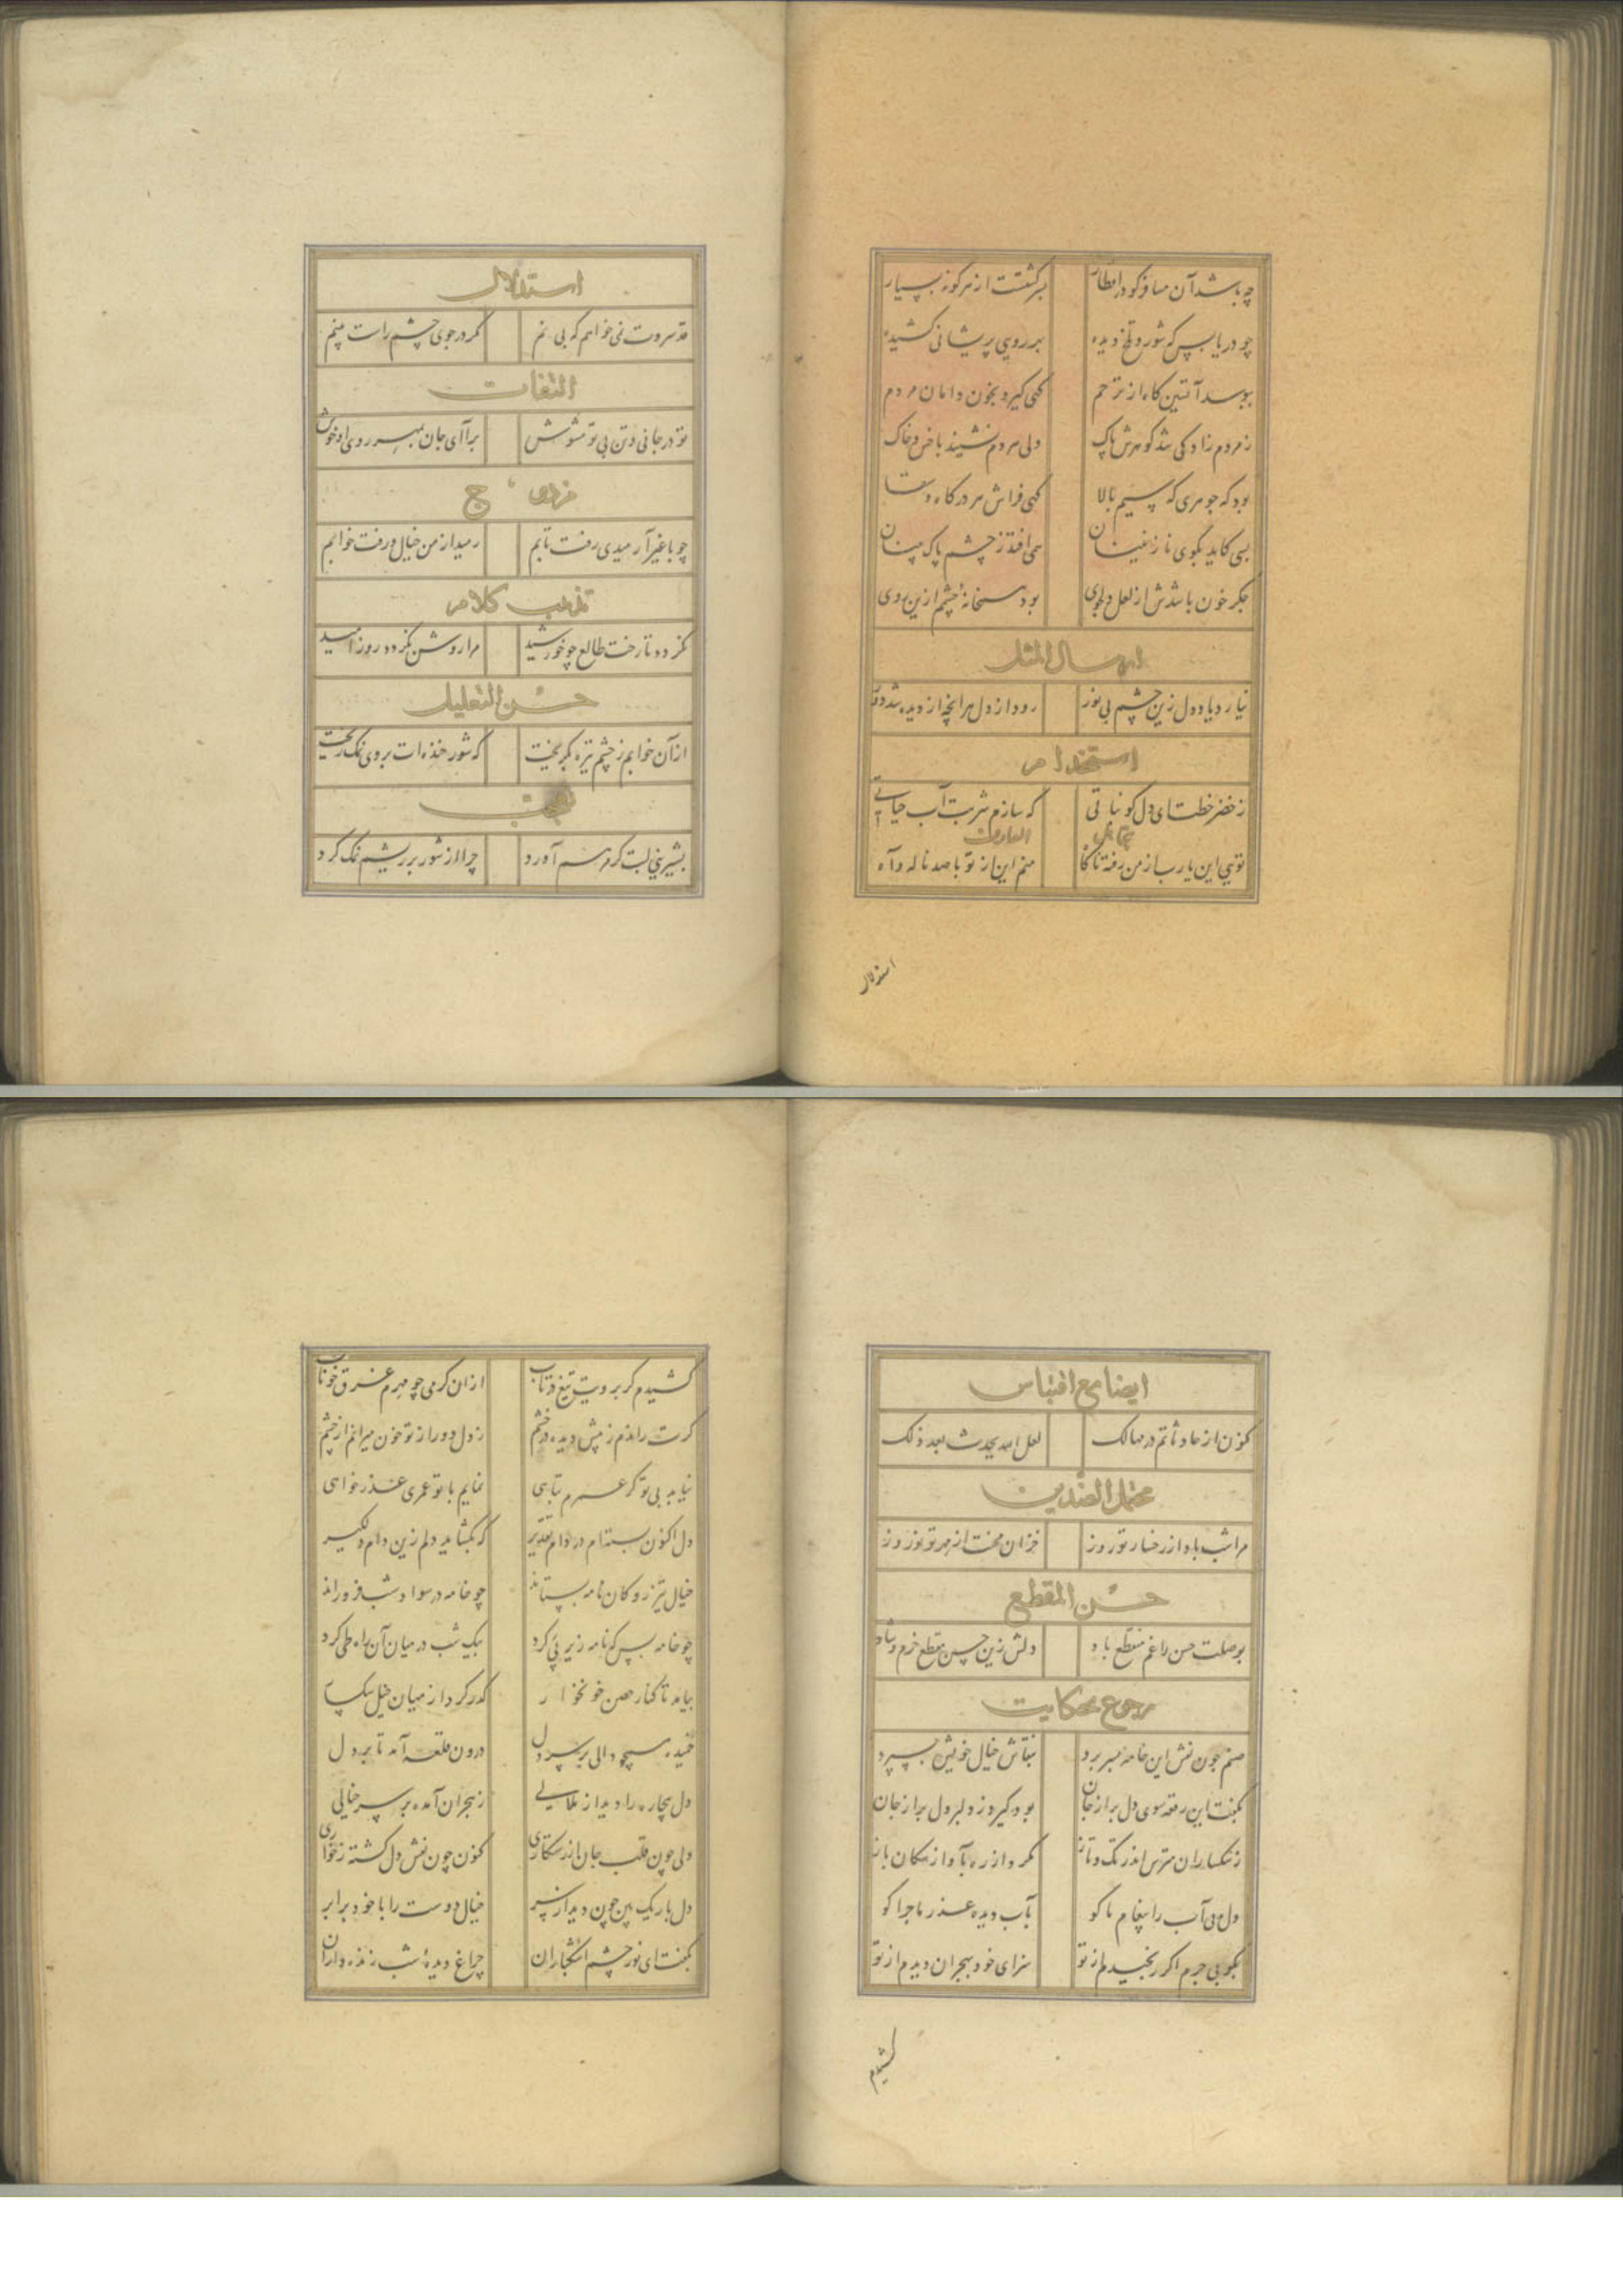 چه باشد آن مسافر کو در اقطار بسر گشتست از هر گونه بسیار
چو دریا بس که شور و تلخ دیده بر روی پریشانی کشیده
ببوسد آستین گاه از ترحم گهی گیرد بخون دامان مردم
ز مردم زادگی شد گوهرش پاک ولی مردم نشیند با خس و خاک
بود که جوهری که سیم بالا گهی فراش هر درگاه و
بسی کاید بکوی نازنینان همی افتد ز چشم پاک بینان
جگر خون باشدش از لعل دلجوی بود سخانهٔ چشم ازین روی
ارسال المثل
نیارد یاد دل زین چشم بی نور رود از دل هرانچه از دیده شد دور
استخدام
ز خضر خطت ای دل کو نباتی که سازم شربت آب حیاتی
تجاهل العارف
تویی این یا رب از من رفته ناگاه منم این از تو با صد ناله و آه
استدلال
استدلال
قد سروت نمی خواهم که بی نم مگر در جوی چشم راست بینم
التفات
تو در جانی و تن بی تو مشوش برآ ای جان بمهر روی او خوش
مزدوج
چو با غیر آرمیدی رفت تابم رمید از من خیال و رفت خوابم
مذهب کلامی
نگردد تا رخت طالع چو خورشید مرا روشن نگردد روز امید
حسن التعلیل
از آن خوابم ز چشم تیره بگریخت که شور خنده ات بروی نمک ریخت
تعجب
بشیرینی لبت گر مرهم آورد چرا از شور بر ریشم نمک کرد
ایضا مع اقتباس
کنون از حادثاتم در مهالک لعل الله یحدث بعد ذلک
محتمل الضدین
مرا شب باد از رخسار تو روز خزان محنت از مهر تو نوروز
حسن المقطع
بوصلت حسن را غم منقطع باد دلش زین حسن مقطع خرم و شاد
رجوع بحکایت
صنم چون نقش این خامه بسر برد بنقاش خیال خویش بسپرد
بگفت این رقعه سوی دل بر از جان بود گیرد ز دلبر دل بر از جان
ز سکساران مترس اندر تک و تاز نگردد از ره بآواز سگان باز
دل بی آب را پیغام ما گو بآب دیده عذر ماجرا گو
بگو بی جرم اگر رنجیدم از تو سزای خود بهجران دیدم از تو
کشیدم
کشیدم گر برویت تیغ در تاب ازان گرمی چو مهرم غرق خوناب
گرت راندم ز پیش دیده در خشم ز دل دور از تو خون میرانم از چشم
نیابد بی تو گر عمرم تباهی نمایم با تو عمری عذر خواهی
دل اکنون بسته ام در دام تقدیر که بگشاید دلم زین دام دلگیر
خیال تیز رو کان نامه بستاند چو خامه در سواد شب فرو راند
چو خامه بس که نامه زیر پی کرد بیک شب در میان آن راه طی کرد
بیامد تا کنار حصن خونخوار گذر کرد از میان خیل سکسار
خمیده همچو دالی بر سر دل درون قلعه آمد تا بر دل
دل بیچاره را دید از ملالی ز هجران آمده بر سر خیالی
ولی چون قلب جان از رستگاری کنون چون نقش دل گشته ز خواری
دل باریک بین چون دید از سر خیال دوست را با خود برابر
بگفت ای نور چشم اشکباران چراغ دیدهٔ شب زنده داران